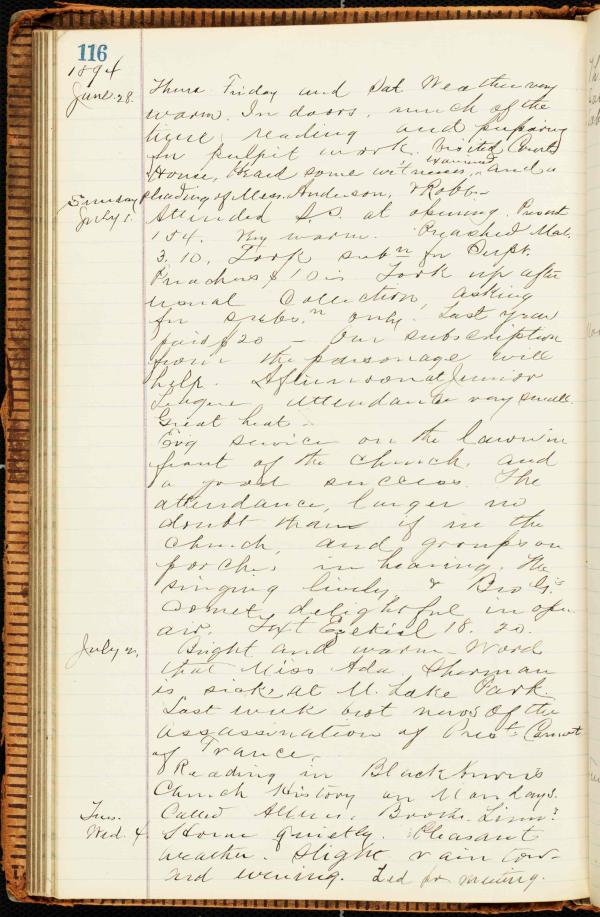 116
1894
June 28. Thurs. Friday and Sat Weather very
warm. In doors, much of the
time, reading and preparing
for pulpit work. Visited Court
House, Heard some witnesses, examined and a
Sunday pleading of Mess. Anderson, & Robb-
July 1. Attended S.S. at opening. Present
154. Very warm. Preached Mal.
3.10. Took subn for Supt.
Preachers $10 is Took up after
usual Collection, asking
for subs.n only. Last year
paid $20 - Our subscription
from the parsonage will
help. Afternoon at Junior
League, attendance very small.
Great heat -
Ev'g service on the lawn in
front of the church, and
a good success. The
attendance, larger no
doubt than if in the
church, and groups on
porches in hearing. The
singing lively & Bro G's
Cornet, delightful in open
air. Text Ezekiel 18. 20.
July 2. Bright and warm - Word
that Miss Ada Sherman
is sick, at M. Lake Park.
Last week brot news of the
assassination of Prest Carnot
of France.
Reading in Blackburn's
Church History on Mondays.
Tues. Called Allens, Brooks, Linn?
Wed. 4. Home quietly. Pleasant
weather. Slight rain tow-
ard evening. Led pr meeting.